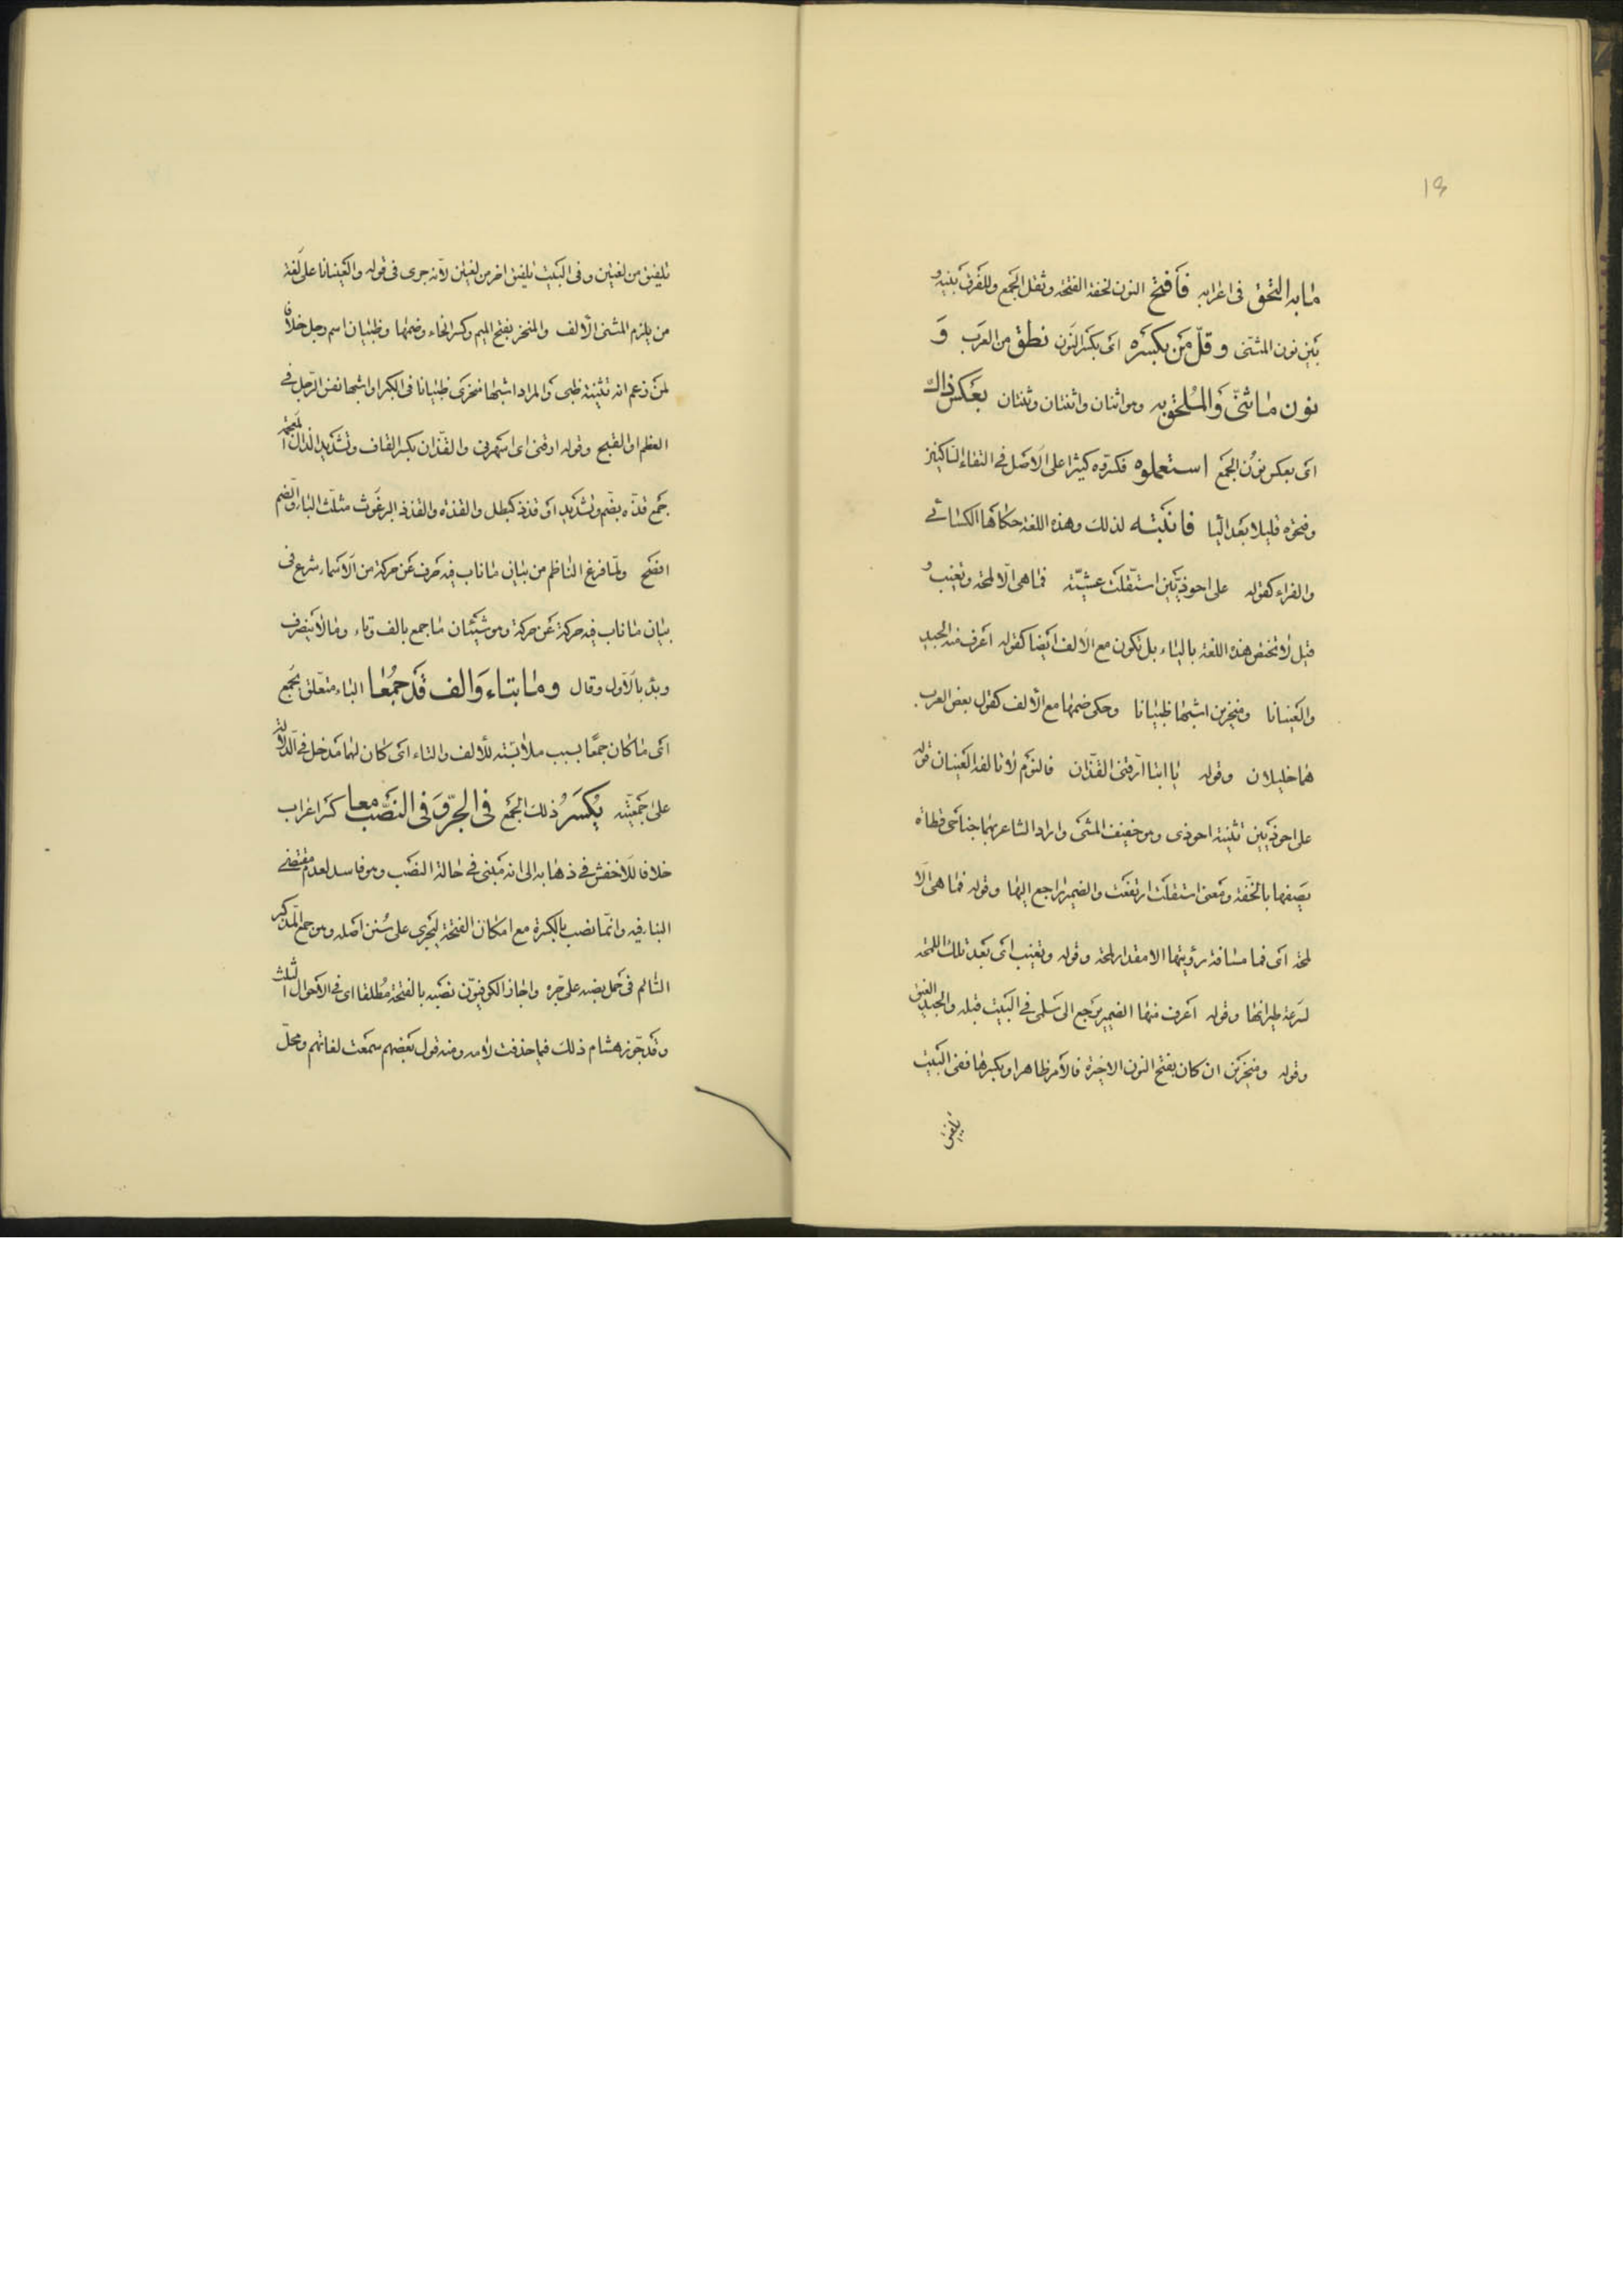 ١٩
مٰا به التحق فى اعرابه فَافتح النون لخفة الفتحة وثقل الجمع وللفرق بينه و
بين نون المثنى وقلّ مَن بكسره اى بكسر النون نطق من العرب وَ
نون مٰا ثنّى وَالمُلحق به وهو اثنان واثنتان وثنتان بعكس ذاك
اى بعكس نون الجمع استعملوه فكسروه كثيرا على الاصل فى التقاء الساكنين
وفتحوه قليلا بعد اليا فانتبه لذلك وهذه اللغة حكاها الكسائى
والفراء كقوله على احوذيَّين استقلت عشيّة فما هى الّا لمحة وتغيب و
قيل لا تختص هذه اللغة بالياء بل تكون مع الالف ايضا كقوله اعرف منها الجيد
والعينانا ومنخرين اشبها ظبيانا وحكى ضمها مع الالف كقول بعض العرب
هما خليلان وقوله يا ابتا ارّقنى القذّان فالنوم لا تالفه العينان قوله
على احوذيين تثنية احوذى وهو خفيف المشى واراد الشاعر بهما جناحى قطاة
يصفها بالخفّة ومعنى استقلت ارتفعت والضمير راجع اليها وقوله فما هى الا
لمحة اى فما مسافة رؤيتها الا مقدار لمحة وقوله وتغيب اى بعد تلك اللمحة
لسرعة طيرانها وقوله اعرف منها الضمير يرجع الى سلمى فى البيت قبله والجيد العنق
وقوله ومنخرين ان كان بفتح النون الاخيرة فالامر ظاهر او بكسرها ففى البيت
تلفيق
تلفيق من لغتين وفى البيت تلفيق اخر من لغتين لانه جرى فى قوله والعينانا على لغة
من يلزم المثنى الالف والمنخر بفتح الميم وكسر الخاء وضمها وظبيان اسم رجل خلافا
لمن زعم انه تثنية ظبى والمراد اشبها منخرى ظبيانا فى الكبر او اشبها نفس الرجل فى
العظم او القبح وقوله ارقنى اى اسهرنى والقذّان بكسر القاف وتشديد الذال المعجمة
جمع قذّه بضم وتشديد او قذذ كبطل والقذه والقذذ البرغوث مثلث الباء والضم
افصح ولمّا فرغ الناظم من بيان مٰا ناب فيه حرف عن حركة من الاسماء شرع فى
بيان مٰا ناب فيه حركة عن حركة وهو شيئان مٰا جمع بالف وتاء ومٰا لا ينصرف
وبدء بالاول وقال ومٰا بتاء وَالف قَد جُمعٰا الباء متعلق بجمع
اى مٰا كان جمعًا بسبب ملابسته للالف والتاء اى كان لهما مدخل فى الدلالة
على جمعيّته يُكسَرُ ذلك الجمع فى الجرّ وَفى النصب معا كسر اعراب
خلافا للاخفش فى ذهابه الى انه مبنى فى حالة النصب وهو فاسد لعدم مقتضى
البناء فيه وانّما نصب بالكسرة مع امكان الفتحة ليجرى على سُنن اصله وهو جمع المذكر
السٰالم فى حمل نصبه على جره واجاز الكوفيون نصبه بالفتحة مُطلقا اى فى الاحوال الثلث
وقد جوز هشام ذلك فيما حذفت لامه ومنه قول بعضهم سمعت لغاتهم ومحلّ